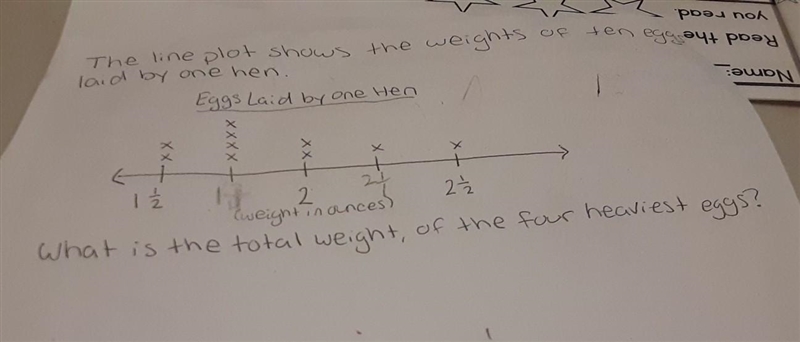 you read.
Read the
Name:
The line plot shows the weights of ten eggs
laid by one hen.
Eggs Laid by one Hen
x x x x x x x x x x
1 1/2 2 2 1/2
(weight in ounces)
What is the total weight, of the four heaviest eggs?